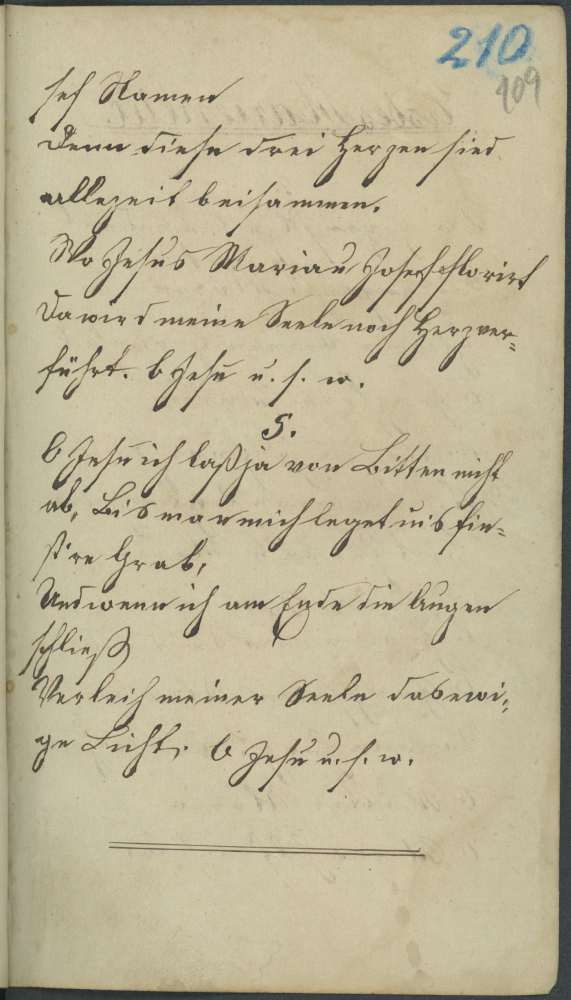 210
109
sef Namen
Denn diese drei Herzen sied
allezeit beisammen.
Wo Jesus Maria u Josef florirt
Da wird meine Seele noch Herz ver=
führt. O Jesu u. s. w.
5.
O Jesu ich laß ja von Bitten nicht
ab, Bis man mich leget ins fin=
st're Grab,
Und wenn ich am Ende die Augen
schließ
Verleih meiner Seele das ewi=
ge Licht. O Jesu u. s. w.